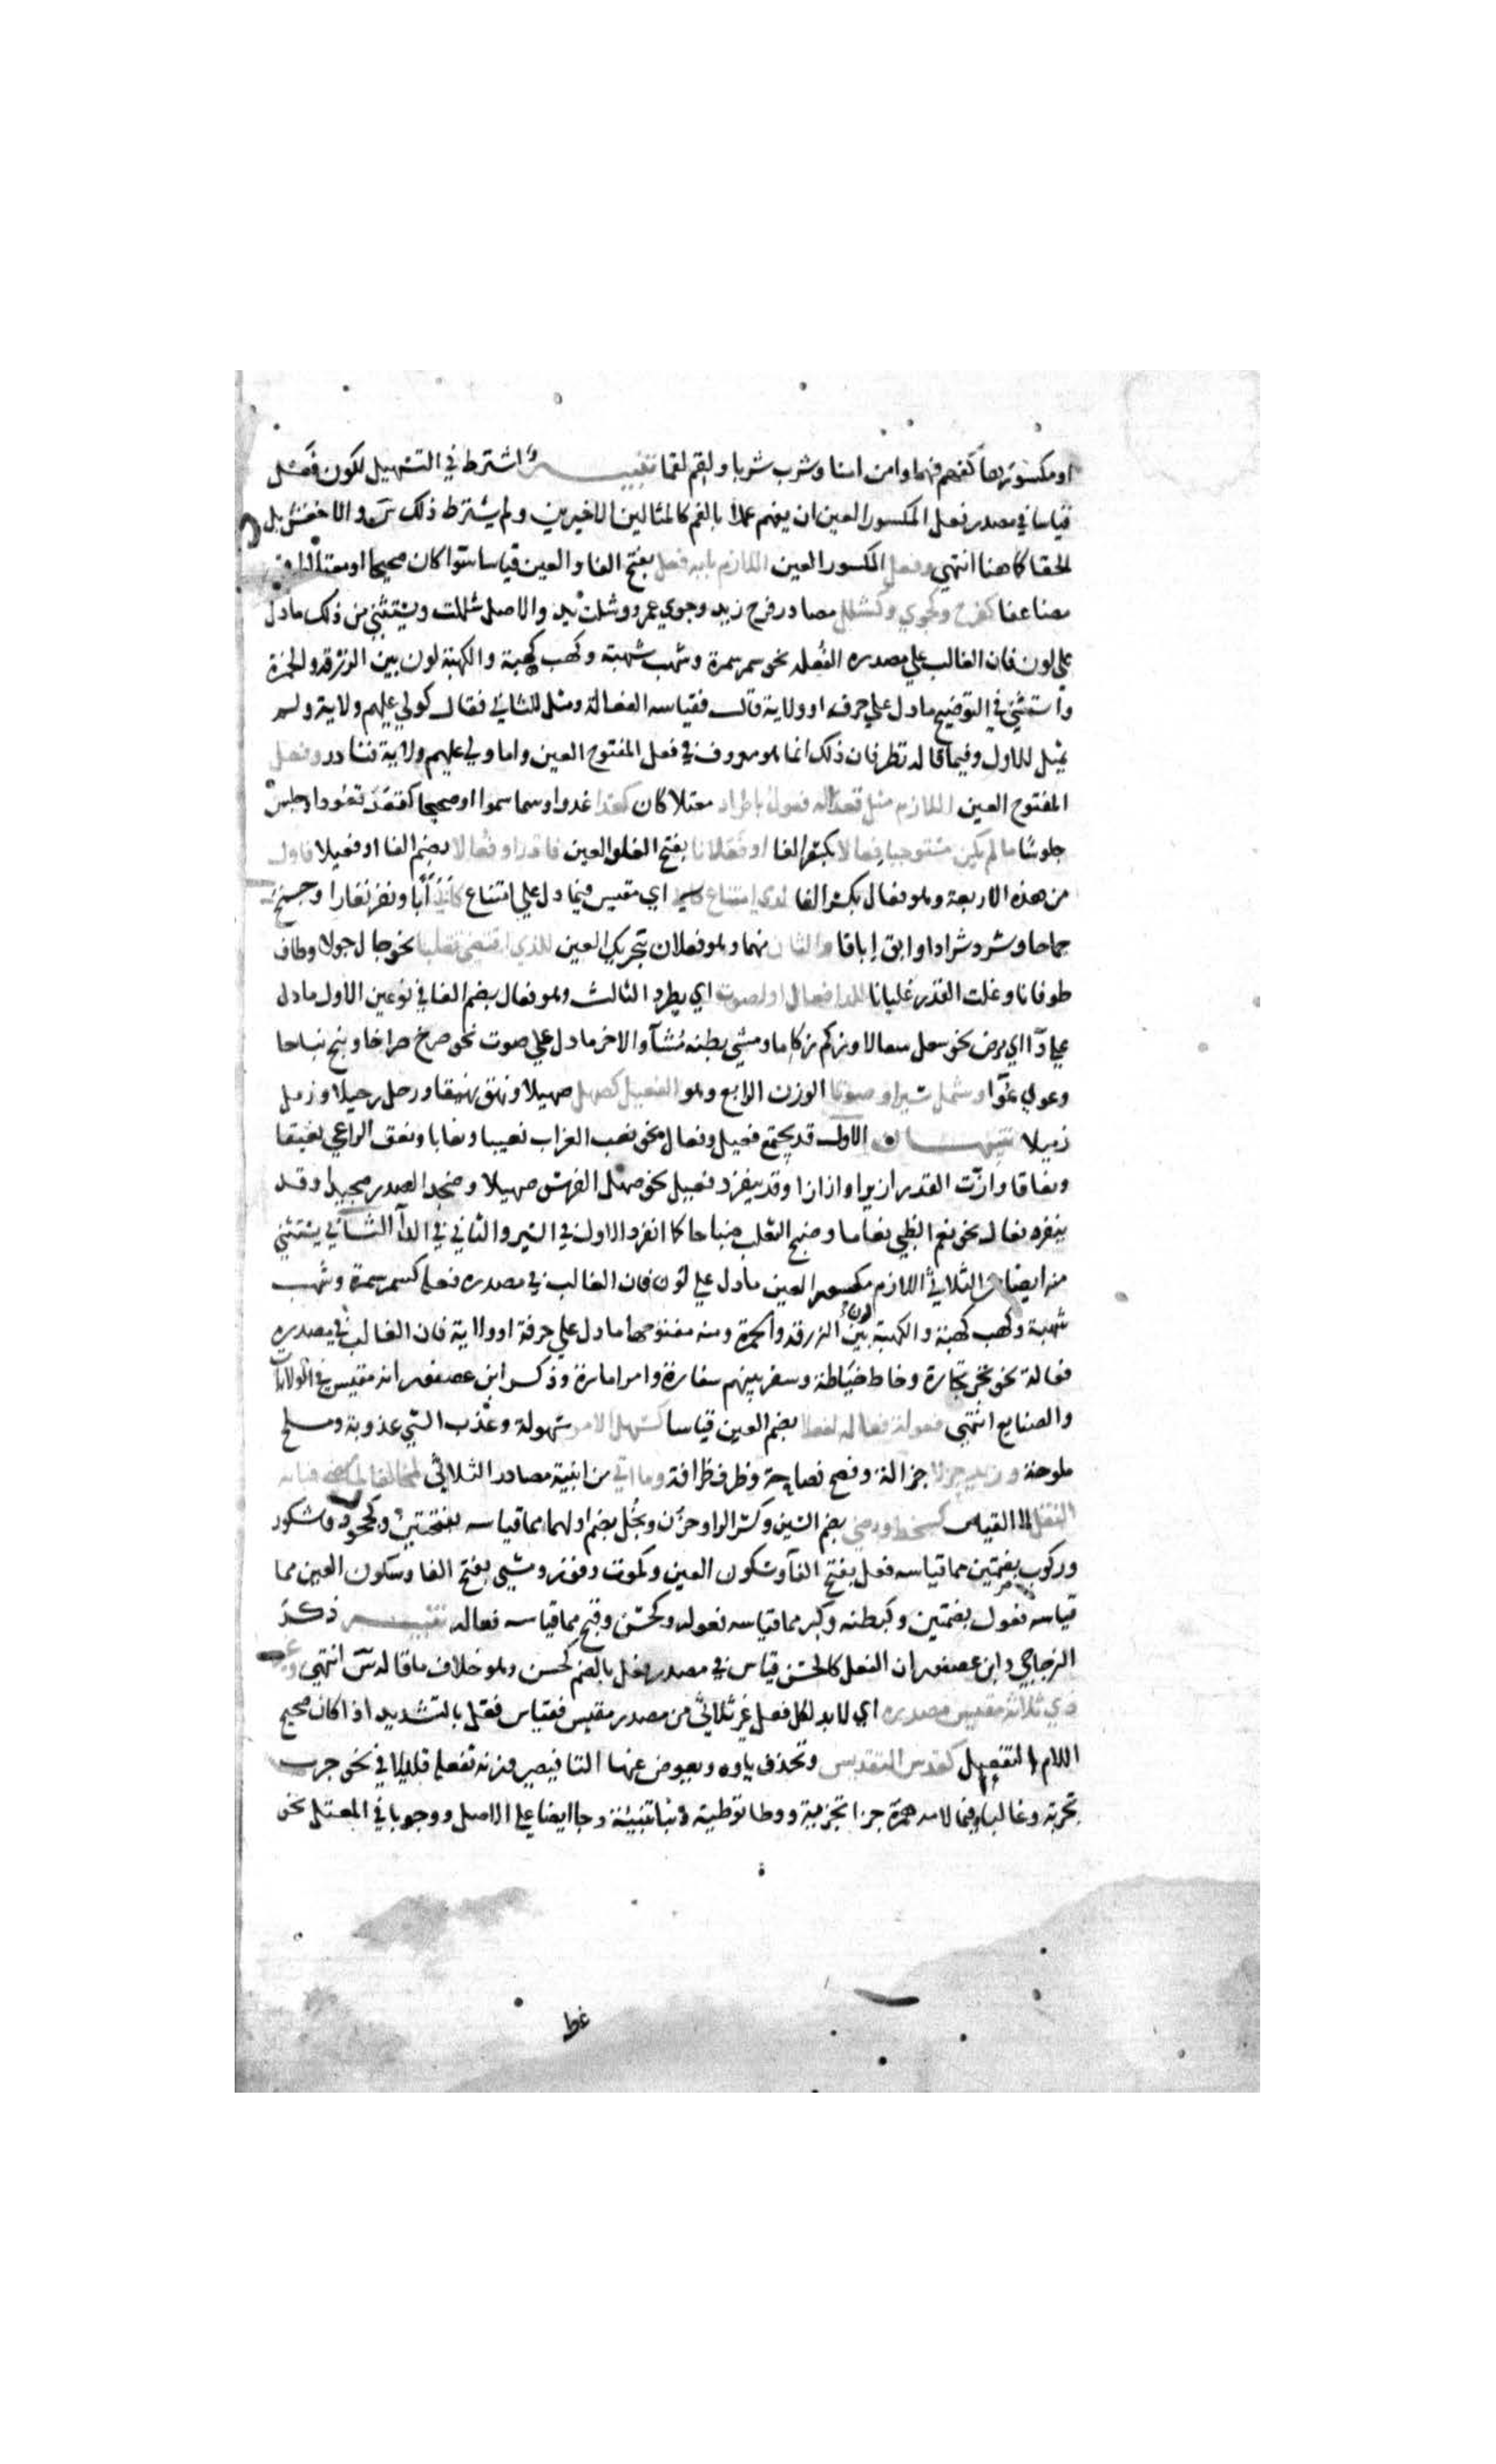 او مكسورها كفهم فهما وامن امنا وشرب شربا ولقم لقما تنبيه اشترط في التسهيل لكون فعل
قياسا في مصدر فعل المكسور العين ان يفهم عملا بالفم كالمثالين الاخيرين ولم يشترط ذلك س والاخفش بل
اطلقا كما هنا انتهي وفعل المكسور العين اللازم بابه فعل بفتح الفا والعين قياسا سوا كان صحيحا او معتلا او
مضاعفا كفرح وكجوي وكشلل مصادر فرح زيد وجوي عمرو وشلت يد والاصل شللت ويستثني من ذلك ما دل
علي لون فان الغالب علي مصدره الفعله نحو سمر سمرة وشهب شهبة وكهب كهبة والكهبة لون بين الزرقه والحمرة
واستثني في التوضيح ما دل علي حرفه او ولاية قال فقياسه الفعالة ومثل للثاني فقال كولي عليهم ولاية ولم
يمثل للاول وفيما قاله نظر فان ذلك انما هو معروف في فعل المفتوح العين واما ولي عليهم ولاية فنادر وفعل
المفتوح العين اللازم مثل قعدا له فعول باطراد معتلا كان كغدا غدوا وسما سموا او صحيحا كقعد قعودا وجلس
جلوسا ما لم يكن مستوجبا فعالا بكسر الفا او فعلانا بفتح الفا والعين فادر او فعالا بضم الفا او فعيلا فاول
من هذه الاربعة وهو فعال بكسر الفا لذي امتناع اي مقيس فيما دل علي امتناع كابي ابا ونفر نفارا وجمح
جماحا وشرد شرادا وابق إباقا والثان منهما وهو فعلان بتحريك العين للذي اقتضي تقلبا نحو جال جولا وطاف
طوفانا وغلت القدر غليانا للدا فعال او لصوت اي يطرد الثالث وهو فعال بضم الفا في نوعين الاول ما دل
علي دآ اي مرض نحو سعل سعالا وزكم زكاما ومشي بطنه مشآ والاخر ما دل علي صوت نحو صرخ صراخا ونبح نباحا
وعوي عوآ وشمل سيرا وصوتا الوزن الرابع وهو الفعيل كصهل صهيلا ونهق نهيقا ورحل رحيلا وزمل
زميلا تنبيهان الاول قد يجتمع فعيل وفعال نحو نعب الغراب نعيبا ونعابا ونعق الراعي نعيقا
ونعاقا وازت القدر ازيزا وازازا وقد ينفرد فعيل نحو صهل الفرس صهيلا وصخد الصرد صخيدا وقد
ينفرد فعال نحو بغم الظبي بغاما وضبح الثعلب ضباحا كما انفرد الاول في السير والثاني في الدآ الثاني يستثني
منه ايضا الثلاثي اللازم مكسور العين ما دل علي لون فان الغالب في مصدره فعله كسمر سمرة وشهب
شهبة وكهب كهبة والكهبة لون بين الزرقه والحمرة ومنه مفتوحها ما دل علي حرفة او ولاية فان الغالب في مصدره
فعالة نحو تجر تجارة وخاط خياطة وسفر بينهم سفارة وامر امارة وذكر ابن عصفور انه مقيس في الولايات
والصنايع انتهي فعولة فعاله لفعلا بضم العين قياسا كسهل الامر سهولة وعذب الشي عذوبة وملح
ملوحة وزيد جزلا جزالة وفصح فصاحة وظرف ظرافة وما اتي من ابنية مصادر الثلاثي مخالفا لما مضي فبابه
النقل لا القياس كسخط ورضي بضم السين وكسر الرا وحزن وبخل بضم اولهما مما قياسه بفتحتين وكجحود وشكور
وركوب بضمتين مما قياسه فعل بفتح الفآ وسكون العين وكموت وفوز ومشي بفتح الفا وسكون العين مما
قياسه فعول بضمتين وكبطنه وكبر مما قياسه فعوله وكحسن وقبح مما قياسه فعاله تنبيه ذكر
الزجاجي وابن عصفور ان الفعل كالحسن قياس في مصدر فعل بالضم كحسن وهو خلاف ما قاله س انتهي وغير
ذي ثلاثة مقيس مصدره اي لابد لكل فعل غير ثلاثي من مصدر مقيس فقياس فعل بالتشديد اذا كان صحيح
اللام التفعيل كقدس التقديس وتحذف ياوه ويعوض عنها التا فيصير وزنه تفعله قليلا في نحو جرب
تجربة وغالبا فيما لامه همزة جزا تجزية ووطا توطية ونبا تنبئة وجا ايضا علي الاصل ووجوبا في المعتل نحو
غط